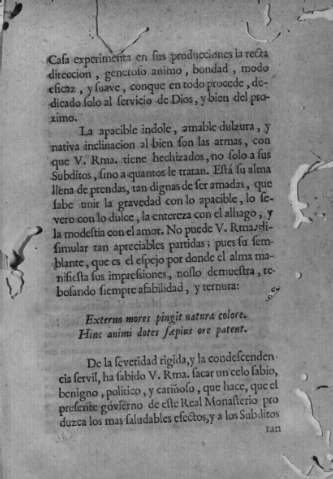 Casa experimenta en sus producciones la recta
direccion, generoso animo, bondad, modo
eficaz, y suave, conque en todo procede, de-
dicado solo al servicio de Dios, y bien del pro-
ximo.
La apacible indole, amable dulzura, y
nativa inclinacion al bien son las armas, con
que V. Rma. tiene hechizados, no solo a sus
Subditos, sino a quantos le tratan. Està su alma
llena de prendas, tan dignas de ser amadas, que
sabe unir la gravedad con lo apacible, lo se-
vero con lo dulce, la entereza con el alhago, y
la modestia con el amor. No puede V. Rma. di-
simular tan apreciables partidas; pues su sem-
blante, que es el espejo por donde el alma ma-
nifiesta sus impressiones, nos lo demuestra, re-
bosando siempre afabilidad, y ternura:
Externo mores pingit natura colore.
Hinc animi dotes sæpius ore patent.
De la severidad rigida, y la condescenden-
cia servil, ha sabido V. Rma. sacar un celo sabio,
benigno, politico, y cariñoso, que hace, que el
presente govierno de este Real Monasterio pro
duzca los mas saludables efectos, y a los Subditos
tan